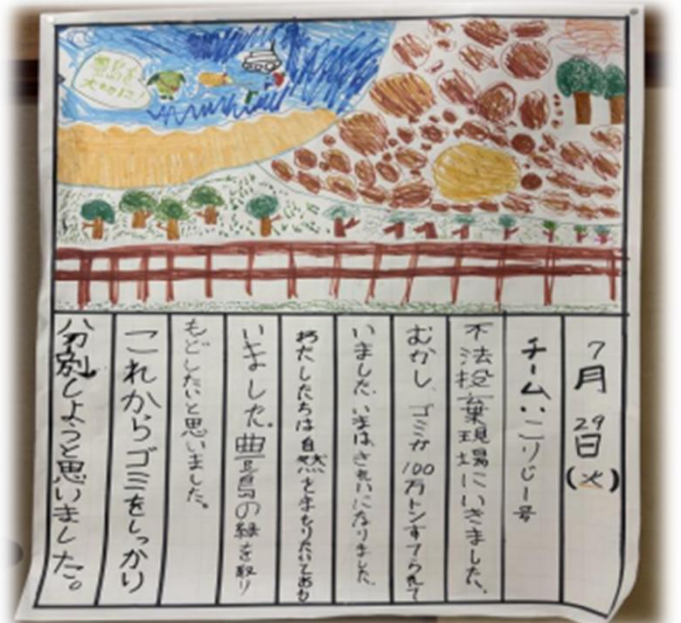 7月29日(火)
チームいこりじー号
不法投棄現場にいきました。
むかし、ゴミが100万トンすてられて
いました。いまはきれいになりました。
わたしたちは自然をまもりたいとおも
いました。豊島の緑を取り
もどしたいと思いました。
これからゴミをしっかり
分別しようと思いました。
大切に